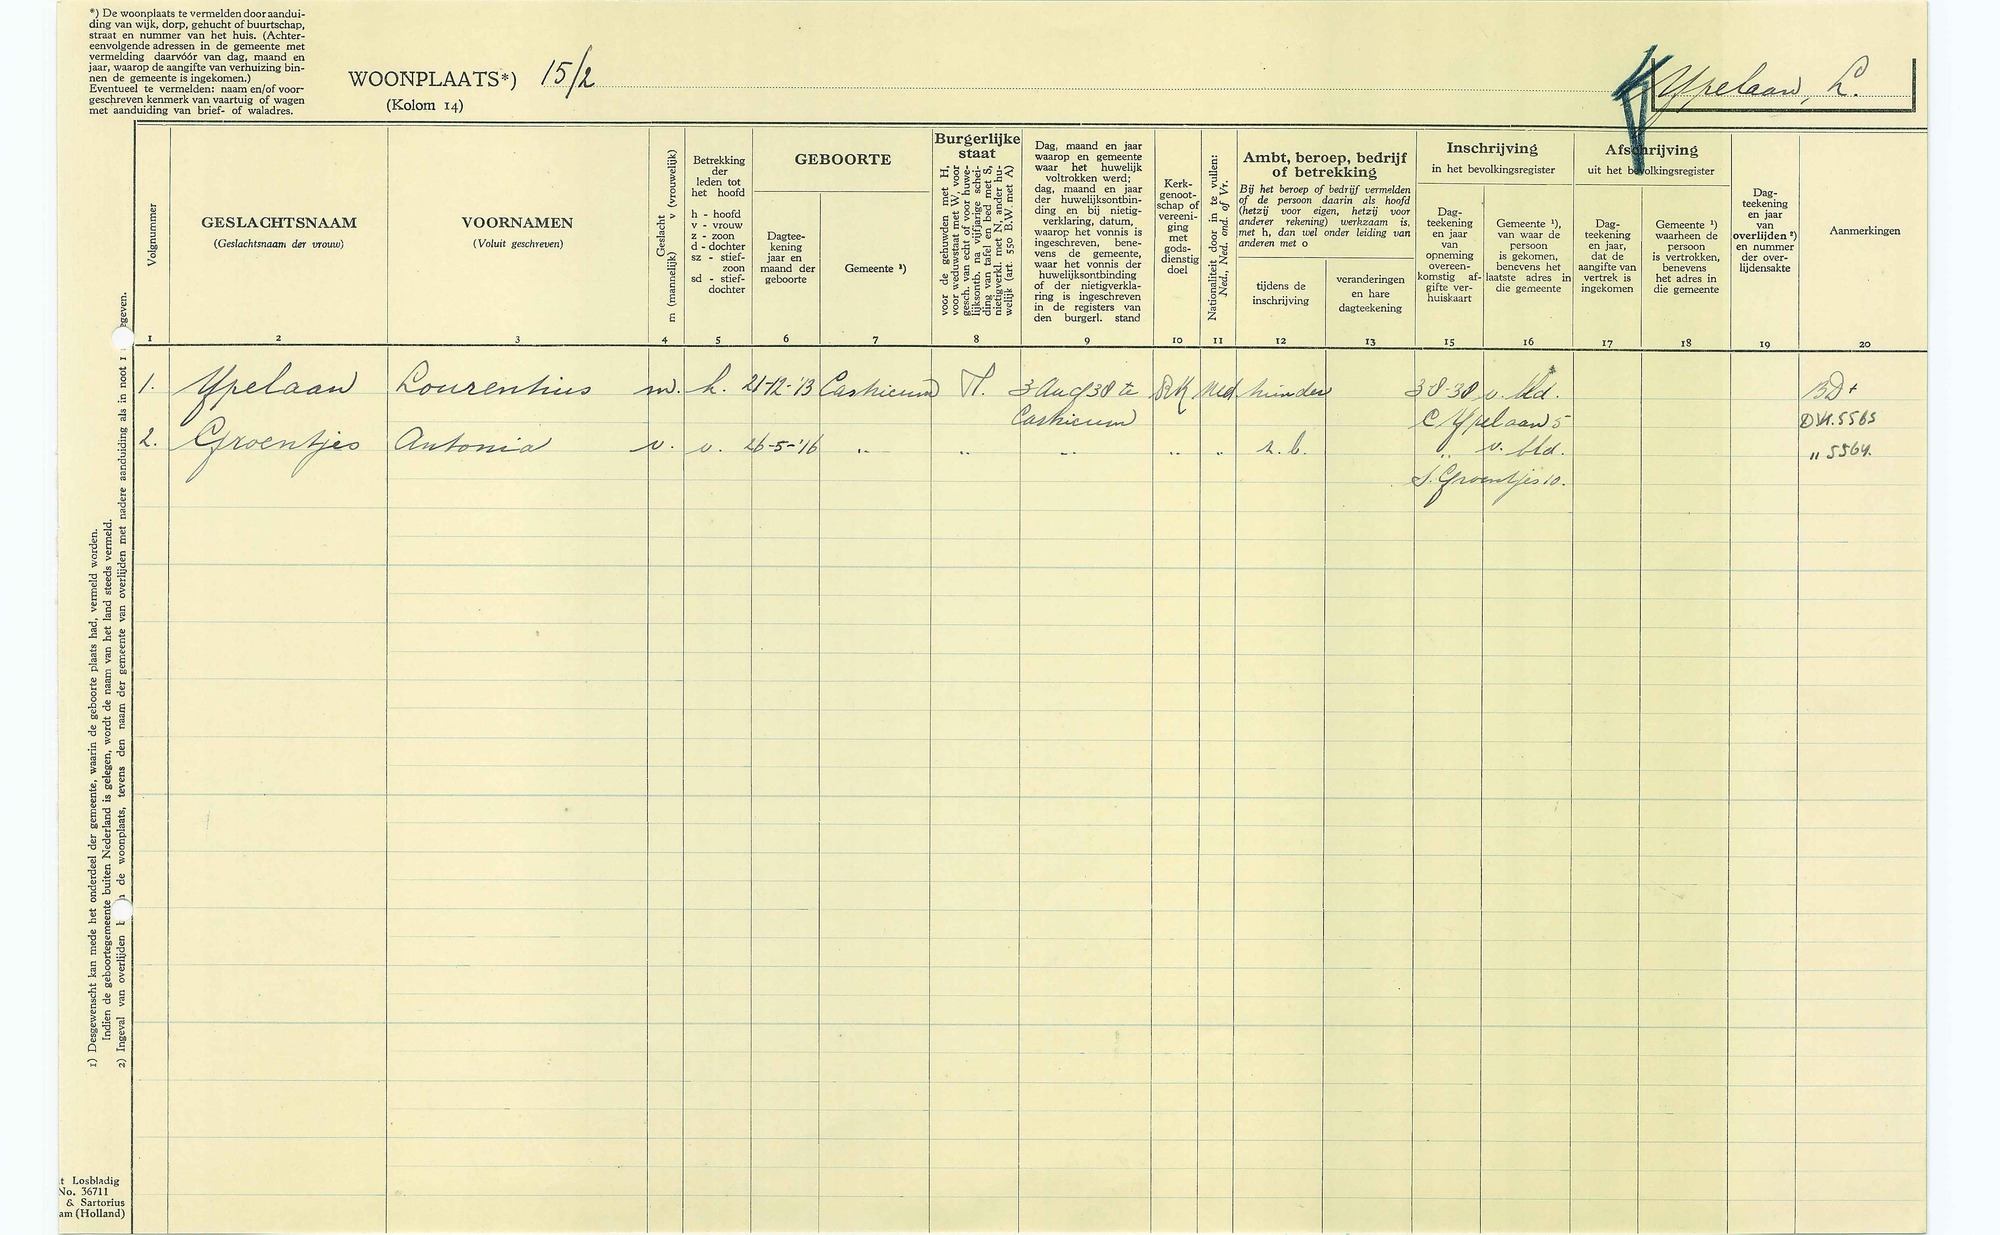 *) De woonplaats te vermelden door aandui-
ding van wijk, dorp, gehucht of buurtschap,
straat en nummer van het huis. (Achter-
eenvolgende adressen in de gemeente met
vermelding daarvóór van dag, maand en
jaar, waarop de aangifte van verhuizing bin-
nen de gemeente is ingekomen.)
Eventueel te vermelden: naam en/of voor-
geschreven kenmerk van vaartuig of wagen
met aanduiding van brief- of waladres.
WOONPLAATS*) 15/2
(Kolom 14)
Ypelaan, L.
Volgnummer
1
GESLACHTSNAAM
(Geslachtsnaam der vrouw)
2
VOORNAMEN
(Voluit geschreven)
3
Geslacht
m (mannelijk) v (vrouwelijk)
4
Betrekking
der
leden tot
het hoofd
h - hoofd
v - vrouw
z - zoon
d - dochter
sz - stief-
zoon
sd - stief-
dochter
5
GEBOORTE
Dagtee-
kening
jaar en
maand der
geboorte
6
Gemeente ¹)
7
Burgerlijke
staat
voor de gehuwden met H,
voor weduwstaat met W, voor
gesch. van echt of voor huwe-
lijksontb. na vijfjarige schei-
ding van tafel en bed met S,
nietigverkl. met N, ander hu-
welijk (art. 550 B.W. met A)
8
Dag, maand en jaar
waarop en gemeente
waar het huwelijk
voltrokken werd;
dag, maand en jaar
der huwelijksontbin-
ding en bij nietig-
verklaring, datum,
waarop het vonnis is
ingeschreven, bene-
vens de gemeente,
waar het vonnis der
huwelijksontbinding
of der nietigverkla-
ring is ingeschreven
in de registers van
den burgerl. stand
9
Kerk-
genoot-
schap of
vereeni-
ging
met
gods-
dienstig
doel
10
Nationaliteit door in te vullen:
Ned., Ned. ond. of Vr.
11
Ambt, beroep, bedrijf
of betrekking
Bij het beroep of bedrijf vermelden
of de persoon daarin als hoofd
(hetzij voor eigen, hetzij voor
anderer rekening) werkzaam is,
met h, dan wel onder leiding van
anderen met o
tijdens de
inschrijving
12
veranderingen
en hare
dagteekening
13
Inschrijving
in het bevolkingsregister
Dag-
teekening
en jaar
van
opneming
overeen-
komstig af-
gifte ver-
huiskaart
15
Gemeente ¹),
van waar de
persoon
is gekomen,
benevens het
laatste adres in
die gemeente
16
Afschrijving
uit het bevolkingsregister
Dag-
teekening
en jaar,
dat de
aangifte van
vertrek is
ingekomen
17
Gemeente ¹)
waarheen de
persoon
is vertrokken,
benevens
het adres in
die gemeente
18
Dag-
teekening
en jaar
van
overlijden ²)
en nummer
der over-
lijdensakte
19
Aanmerkingen
20
1. Ypelaan Lourentius m. h. 21-12-'13 Castricum H. 3 Aug 38 te RK Ned 3-8-38 v. bld. BD+
Castricum C Ypelaan 5 DVI. 5565
2. Groentjes Antonia v. v. 26-5-'16 ,, ,, ,, ,, ,, z.b. ,, v. bld. " 5564.
S. Groentjes 10.
1) Desgewenscht kan mede het onderdeel der gemeente, waarin de geboorte plaats had, vermeld worden.
Indien de geboortegemeente buiten Nederland is gelegen, wordt de naam van het land steeds vermeld.
2) Ingeval van overlijden de woonplaats, tevens den naam der gemeente van overlijden met nadere aanduiding als in noot 1 egeven.
t Losbladig
No. 36711
& Sartorius
am (Holland)